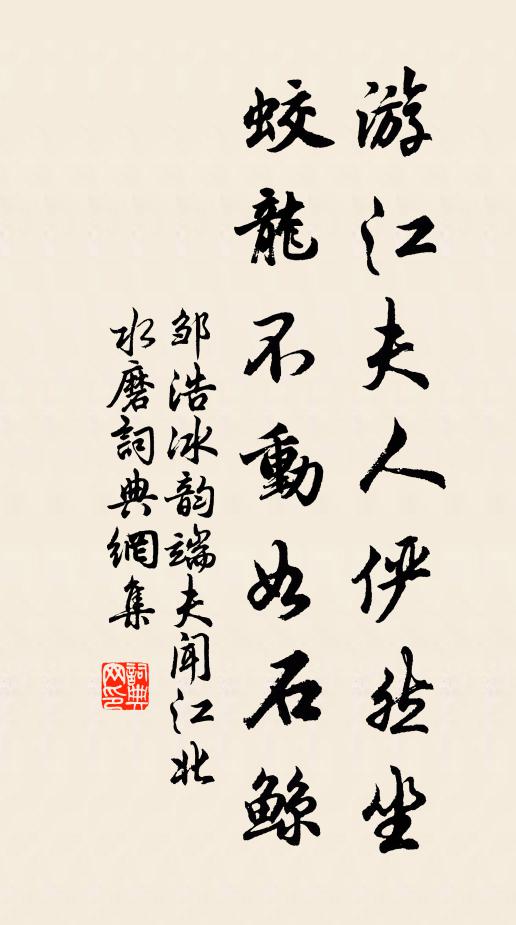 游江夫人俨然坐
蛟龍不動如石鲸
邹浩冰韵端夫闻江北
水磨詞典網集
詞典
网印